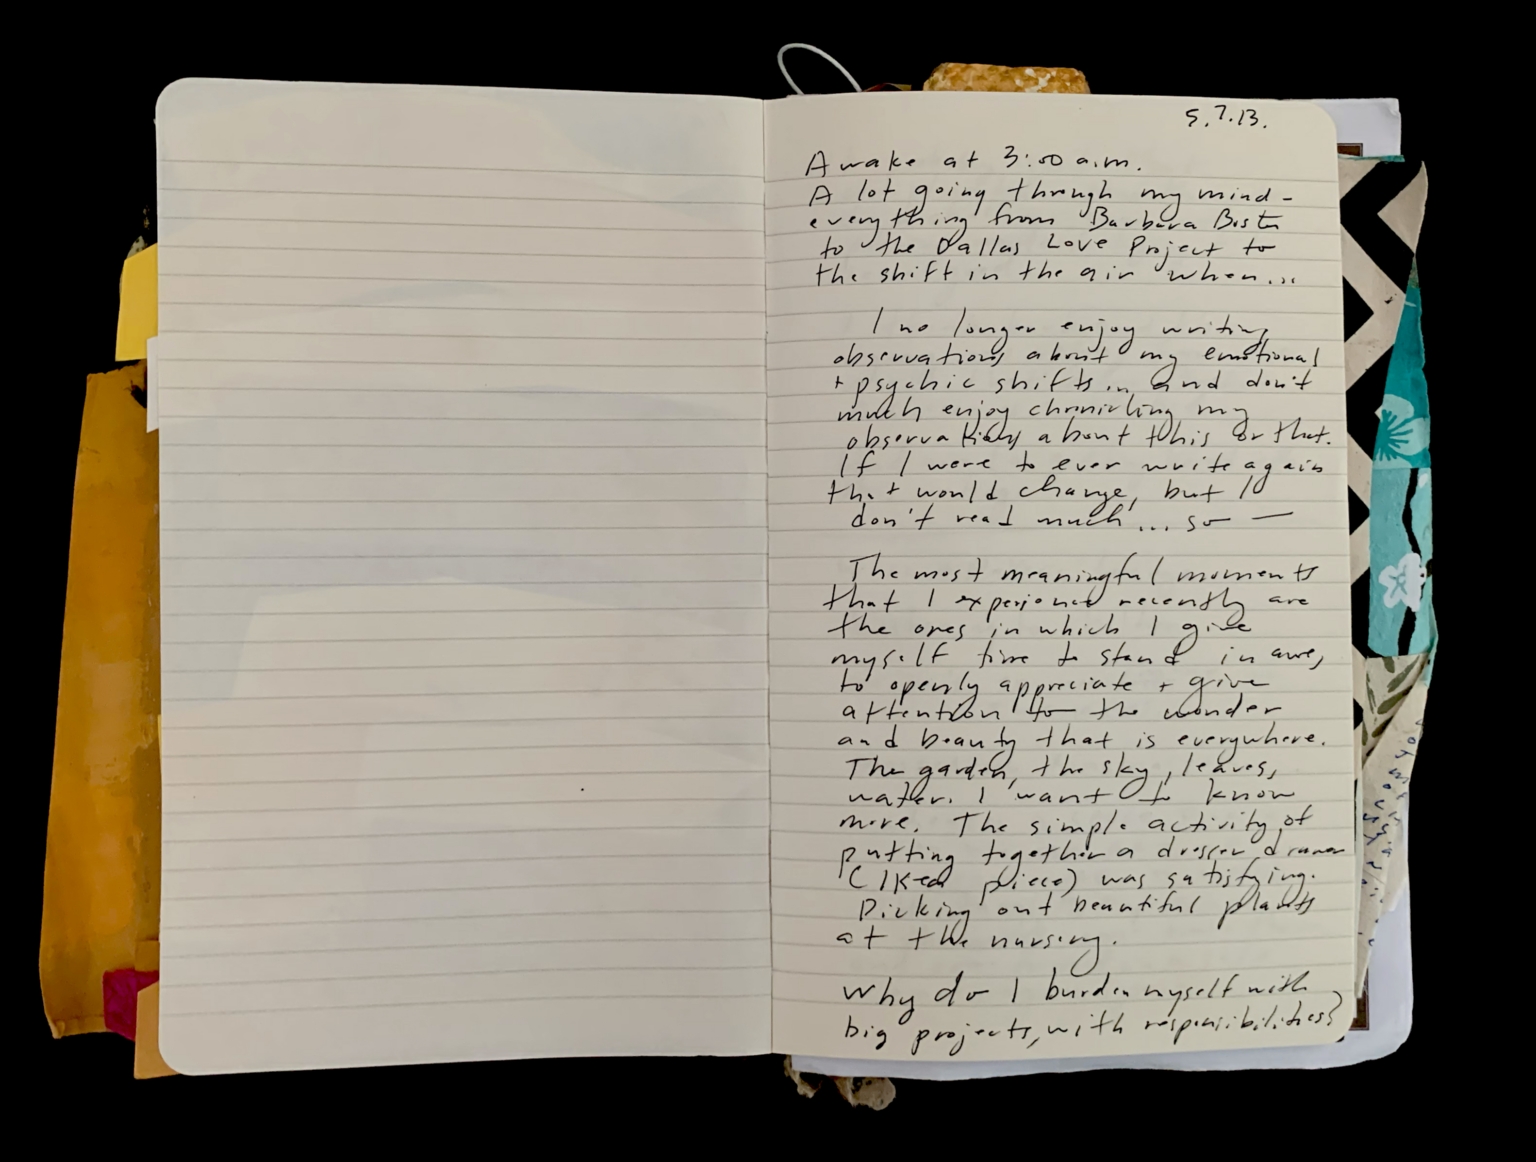 5.7.13.
Awake at 3:00 a.m.
A lot going through my mind -
everything from Barbara
to the Dallas Love Project to
the shift in the air when...
I no longer enjoy writing
observations about my emotional
+ psychic shifts... and don't
much enjoy chronicling my
observations about this or that.
If I were to ever write again
that would change, but I
don't read much... so —
The most meaningful moments
that I experience recently are
the ones in which I give
myself time to stand in awe,
to openly appreciate + give
attention to the wonder
and beauty that is everywhere.
The garden, the sky, leaves,
water. I want to know
more. The simple activity of
putting together a dresser drawer
(IKea piece) was satisfying.
Picking out beautiful plants
at the nursery.
Why do I burden myself with
big projects, with responsibilities?